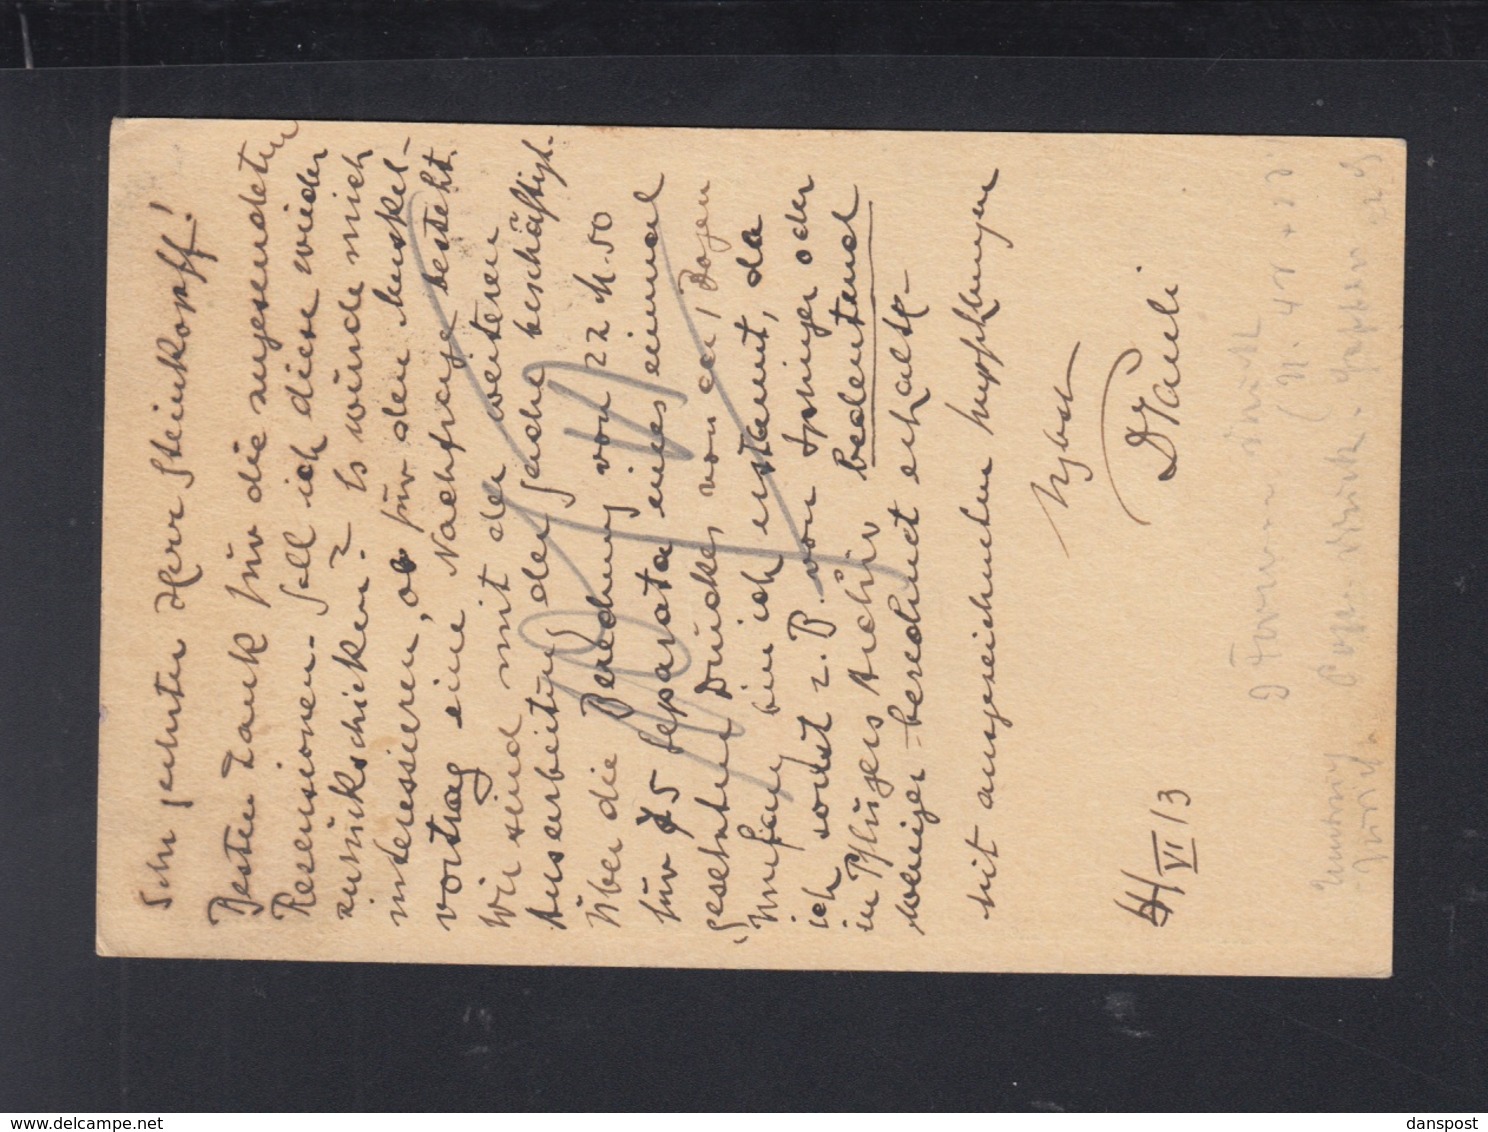 Sehr geehrter Herr Steinkopff!
Besten Dank für die zugesendeten
Rezensionen. Soll ich diese wieder
zurückschicken? Es würde mich
interessieren, ob für den Muskel-
vortrag eine Nachfrage besteht.
Wir sind mit der weiteren
Ausarbeitung der Sache beschäftigt.
Über die Berechnung von 22 M. 50
für 75 Separata eines einmal
gesetzten Druckes von ca 1 Bogen
Umfang bin ich erstaunt, da
ich sonst z. B. von Springer oder
in Pflügers Archiv bedeutend
weniger berechnet erhalte.
Mit ausgezeichneten Empfehlungen
Ihr
D Pauli
4/VI 13
danspost